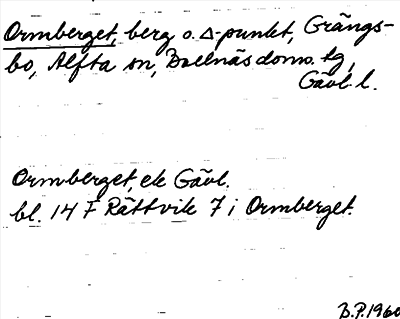 Ormberget, berg o. Δ-punkt, Grängs-
bo, Alfta sn, Bollnäs doms. tg,
Gävl. l.
Ormberget, ek Gävl.
bl. 14 F Rättvik 7 i Ormberget.
B.P. 1960